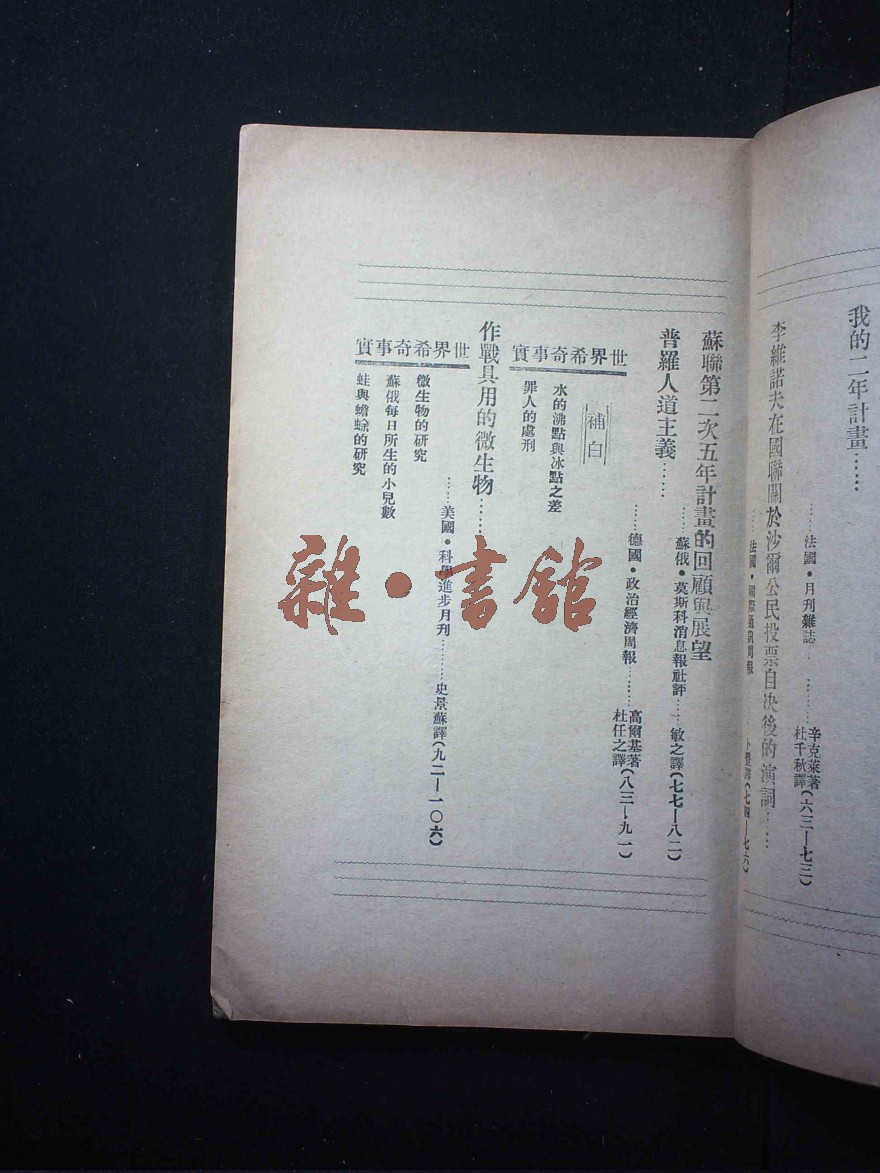 我的二年計畫……
……法國•月刊雜誌……辛克萊著
杜千秋譯(六三—七三)
李維諾夫在國聯關於沙爾公民投票自決後的演詞……
……法國•國際通訊周報……譯(七四—七六)
蘇聯第二次五年計畫的回顧與展望
……蘇俄•莫斯科消息報社評……敏之譯(七七—八二)
普羅人道主義……
……德國•政治經濟周報……高爾基著
杜任之譯(八三—九一)
補白
世界希奇事實
水的沸點與冰點之差
罪人的處刑
作戰具用的微生物……
……美國•科學進步月刊……史景蘇譯(九二—一〇六)
世界希奇事實
微生物的研究
蘇俄每日所生的小兒數
蛙與蟾蜍的研究
雜•書館